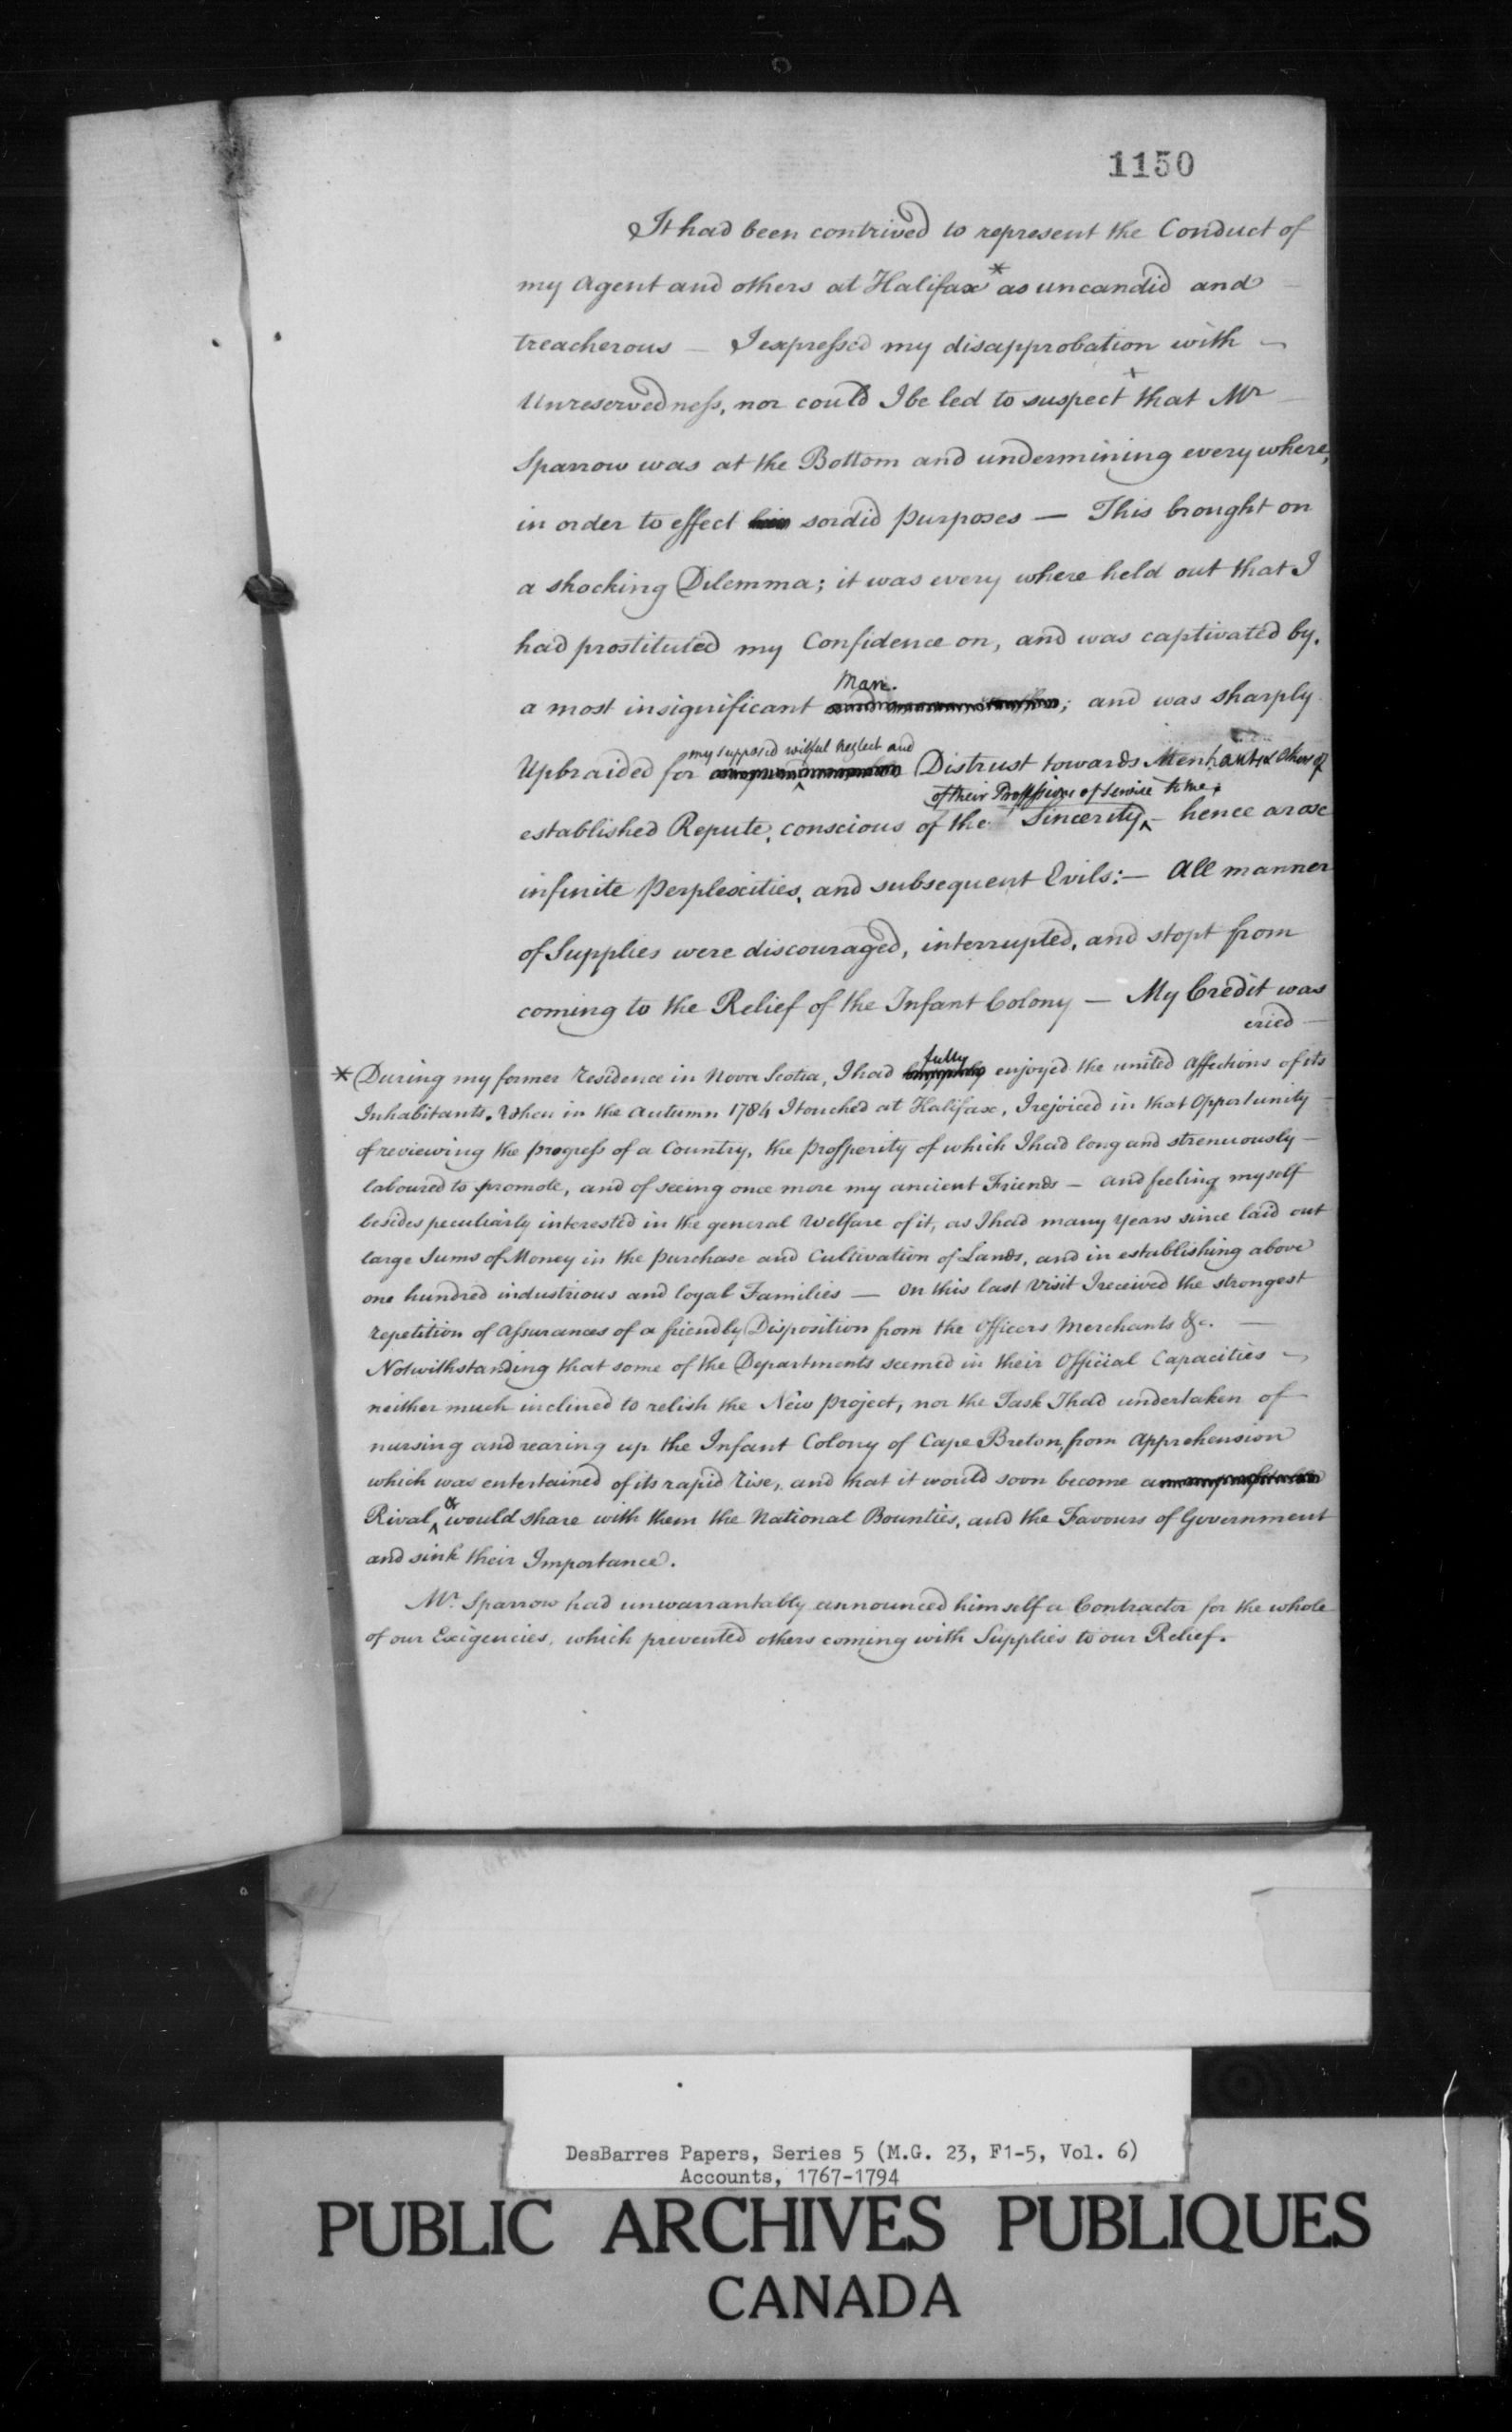 1150
It had been contrived to represent the Conduct of
my Agent and others at Halifax * as uncandid and
treacherous — I expressed my disapprobation with
Unreservedness, nor could I be led to suspect + that Mr
Sparrow was at the Bottom and undermining every where,
in order to effect his sordid purposes — This brought on
a shocking Dilemma; it was every where held out that I
had prostituted my Confidence on, and was captivated by.
Man.
a most insignificant ; and was sharply
my supposed wilful Neglect and
Upbraided for Distrust towards Merchants & Others of
of their Professions of Service to me
established Repute, conscious of the Sincerity, — hence arose
infinite Perplexities, and subsequent Evils:— All manner
of Supplies were discouraged, interrupted, and stopt from
coming to the Relief of the Infant Colony — My Credit was
cried —
* During my former Residence in Nova Scotia, I had fully enjoyed the united Affections of its
Inhabitants. When in the Autumn 1784 I touched at Halifax, I rejoiced in that Opportunity
of reviewing the progress of a Country, the Prosperity of which I had long and strenuously —
laboured to promote, and of seeing once more my ancient Friends — and feeling myself
besides peculiarly interested in the general Welfare of it, as I had many Years since laid out
large Sums of Money in the purchase and Cultivation of Lands, and in establishing above
one hundred industrious and loyal Families — On this last Visit I received the strongest
repetition of Assurances of a friendly Disposition from the Officers Merchants &c. —
Notwithstanding that some of the Departments seemed in their Official Capacities —
neither much inclined to relish the New project, nor the Task I had undertaken of
nursing and rearing up the Infant Colony of Cape Breton, from Apprehension
which was entertained of its rapid Rise, and that it would soon become a
Rival, & would share with them the National Bounties, and the Favours of Government
and sink their Importance.
Mr. Sparrow had unwarrantably announced himself a Contractor for the whole
of our Exigencies, which prevented others coming with Supplies to our Relief.
DesBarres Papers, Series 5 (M.G. 23, F1-5, Vol. 6)
Accounts, 1767-1794
PUBLIC ARCHIVES PUBLIQUES
CANADA